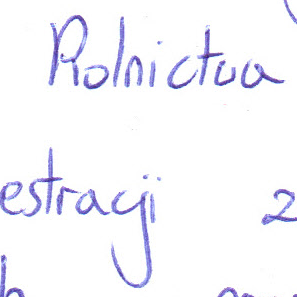 Rolnictwa
estracji 2